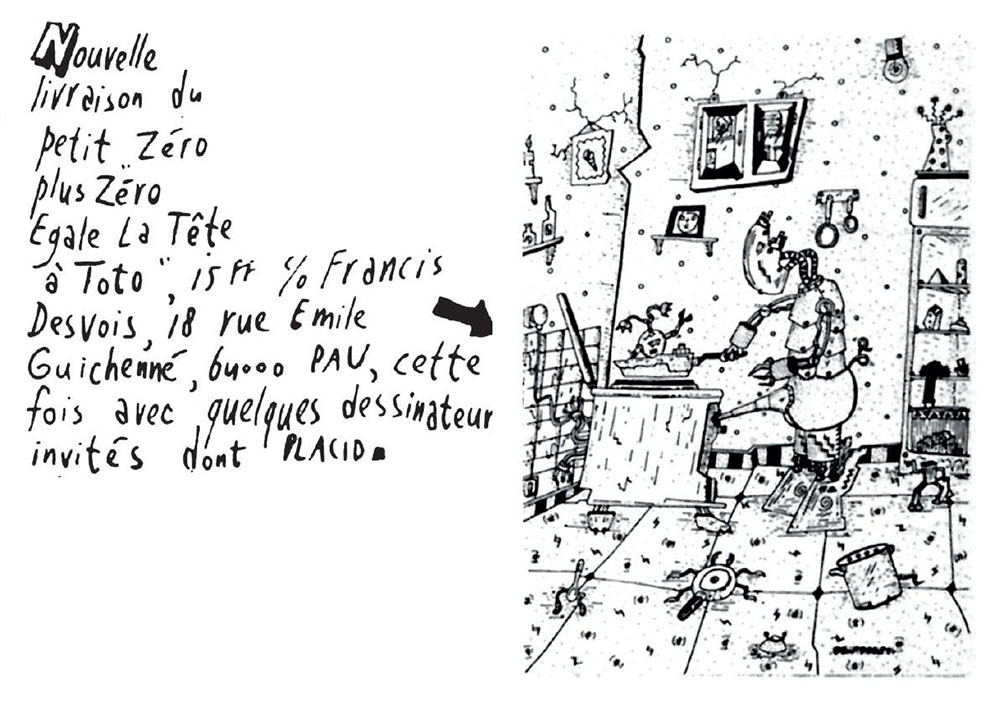 Nouvelle
livraison du
petit "Zéro
plus Zéro
Egale La Tête
à Toto", 15 FF c/o Francis
Desvois, 18 rue Emile
Guichenné, 64000 PAU, cette
fois avec quelques dessinateur
invités dont PLACID.